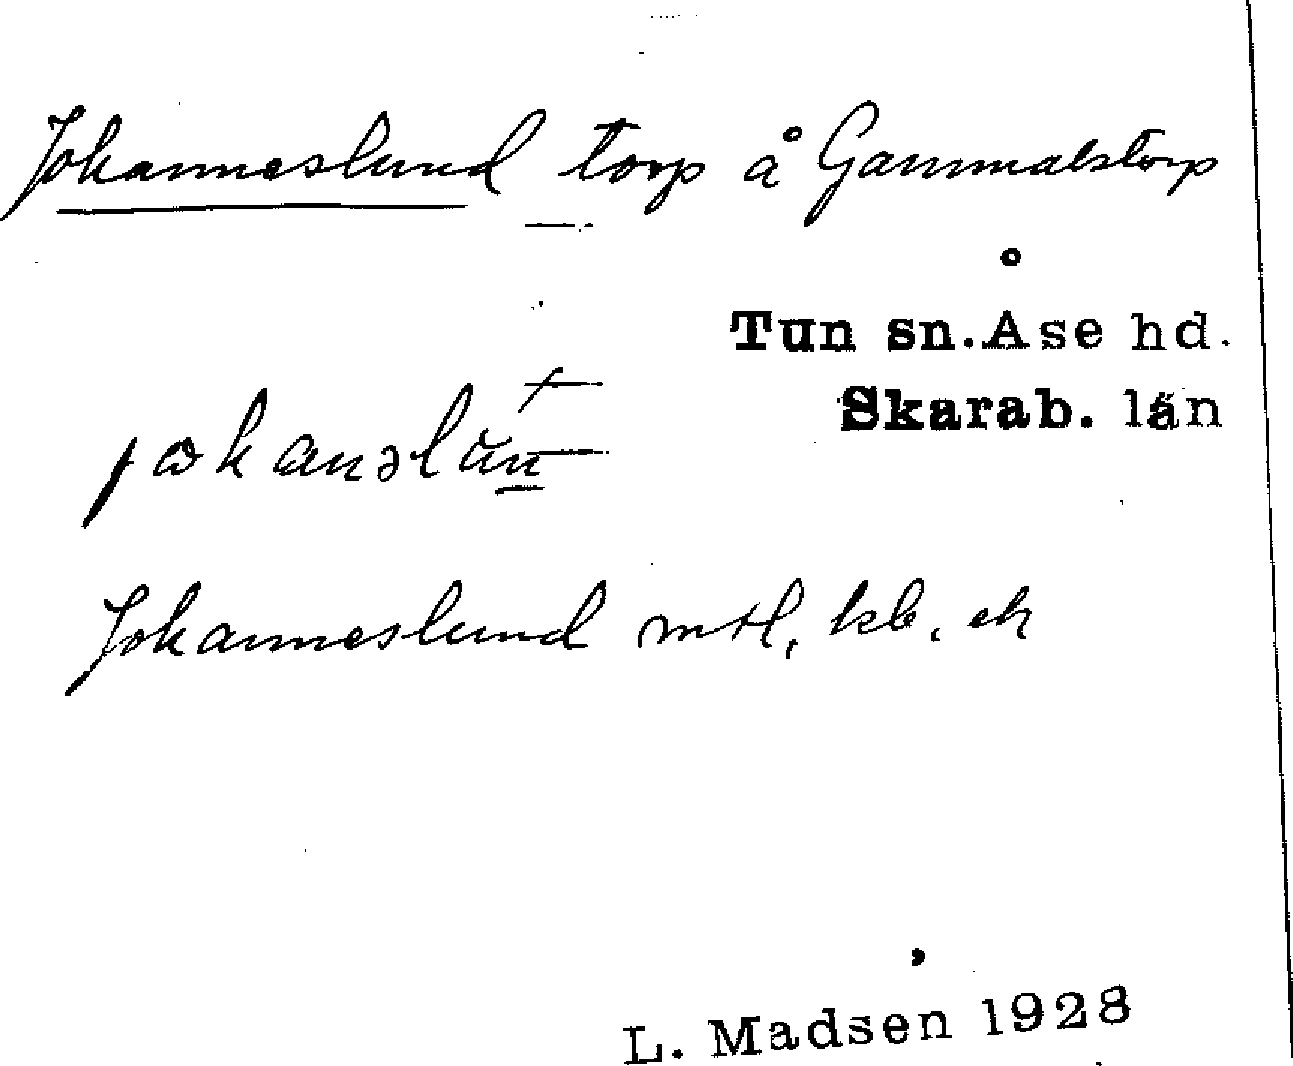 Johanneslund torp å Gammalstorp
Tun sn. Åse hd.
Skarab. län
Johanneslund mtl, kb, ek
L. Madsen 1928